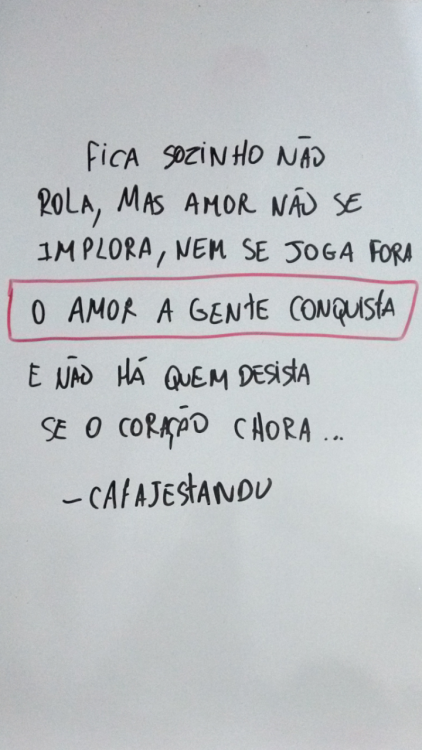 FICA SOZINHO NÃO
ROLA, MAS AMOR NÃO SE
IMPLORA, NEM SE JOGA FORA
O AMOR A GENTE CONQUISTA
E NÃO HÁ QUEM DESISTA
SE O CORAÇÃO CHORA...
- CAFAJESTANDU